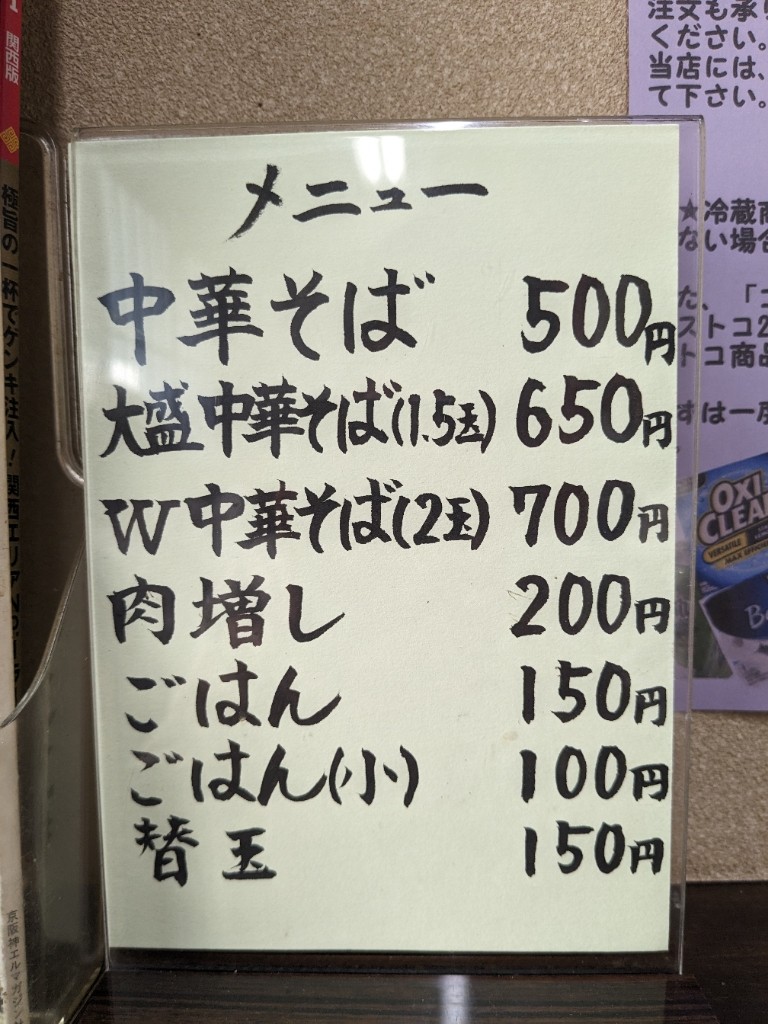 関西版
極旨の一杯でゲンキ注入!関西エリアNo.1ラ
京阪神エルマガジン
注文も承り
ください。
当店には、
て下さい。
★冷蔵商
ない場合
た、「コ
ストコ2
トコ商品
すは一
OXI
CLEAN
VERSATILE
メニュー
中華そば 500円
大盛中華そば(1.5玉) 650円
W中華そば(2玉) 700円
肉増し 200円
ごはん 150円
ごはん(小) 100円
替玉 150円